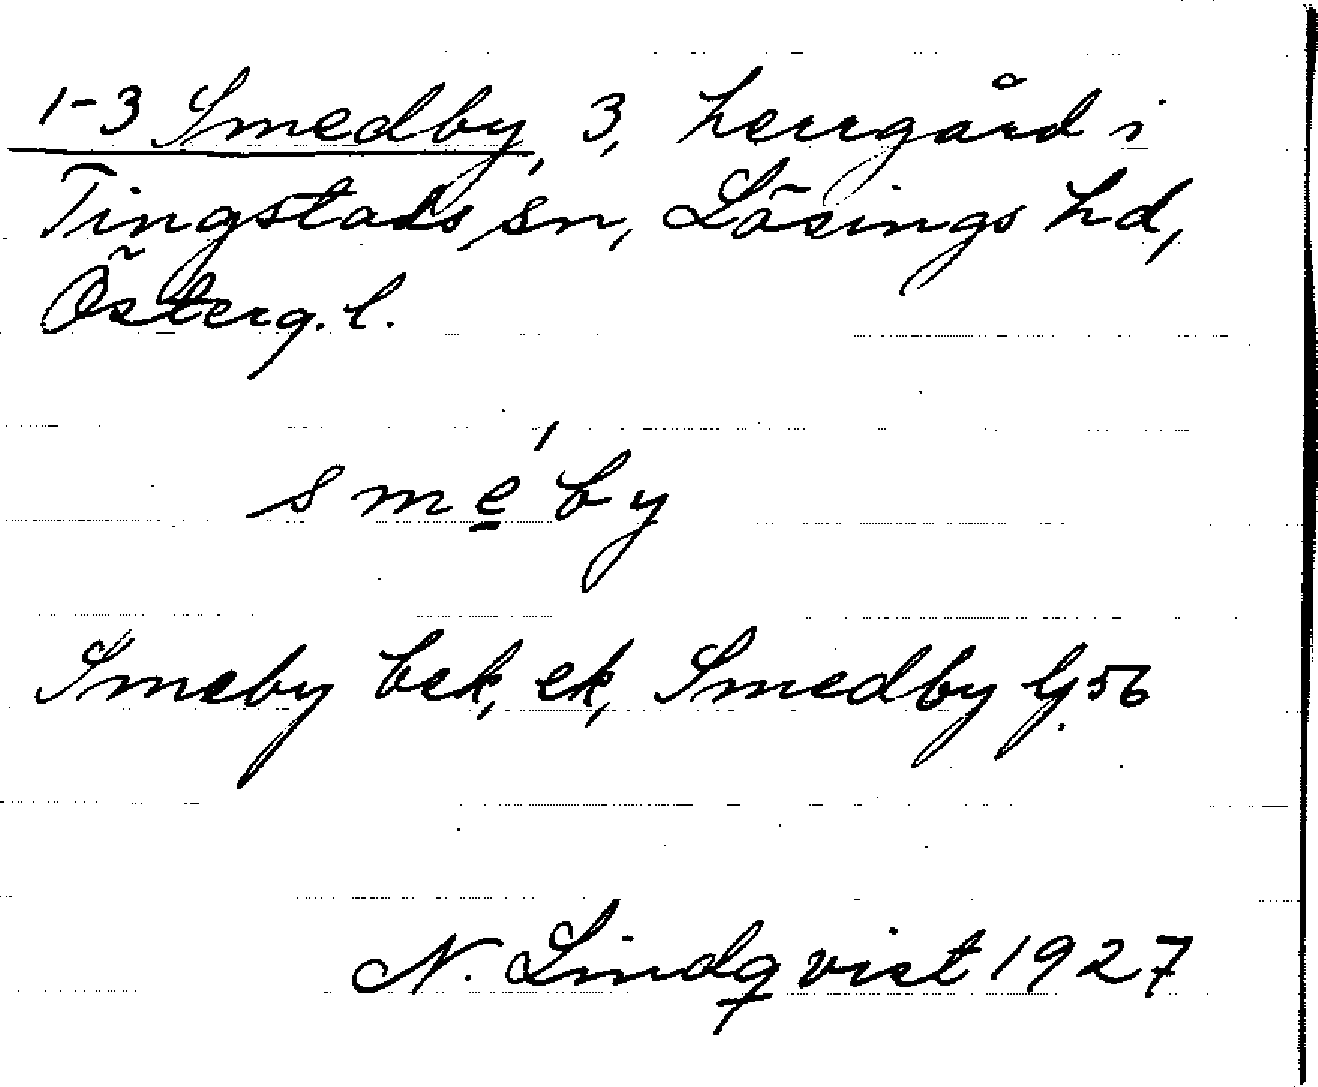 1-3 Smedby, 3, herrgård i
Tingstads sn, Lösings hd,
Österg. l.
sme̲´by
Smeby bek, ek, Smedby G 56
N. Lindqvist 1927